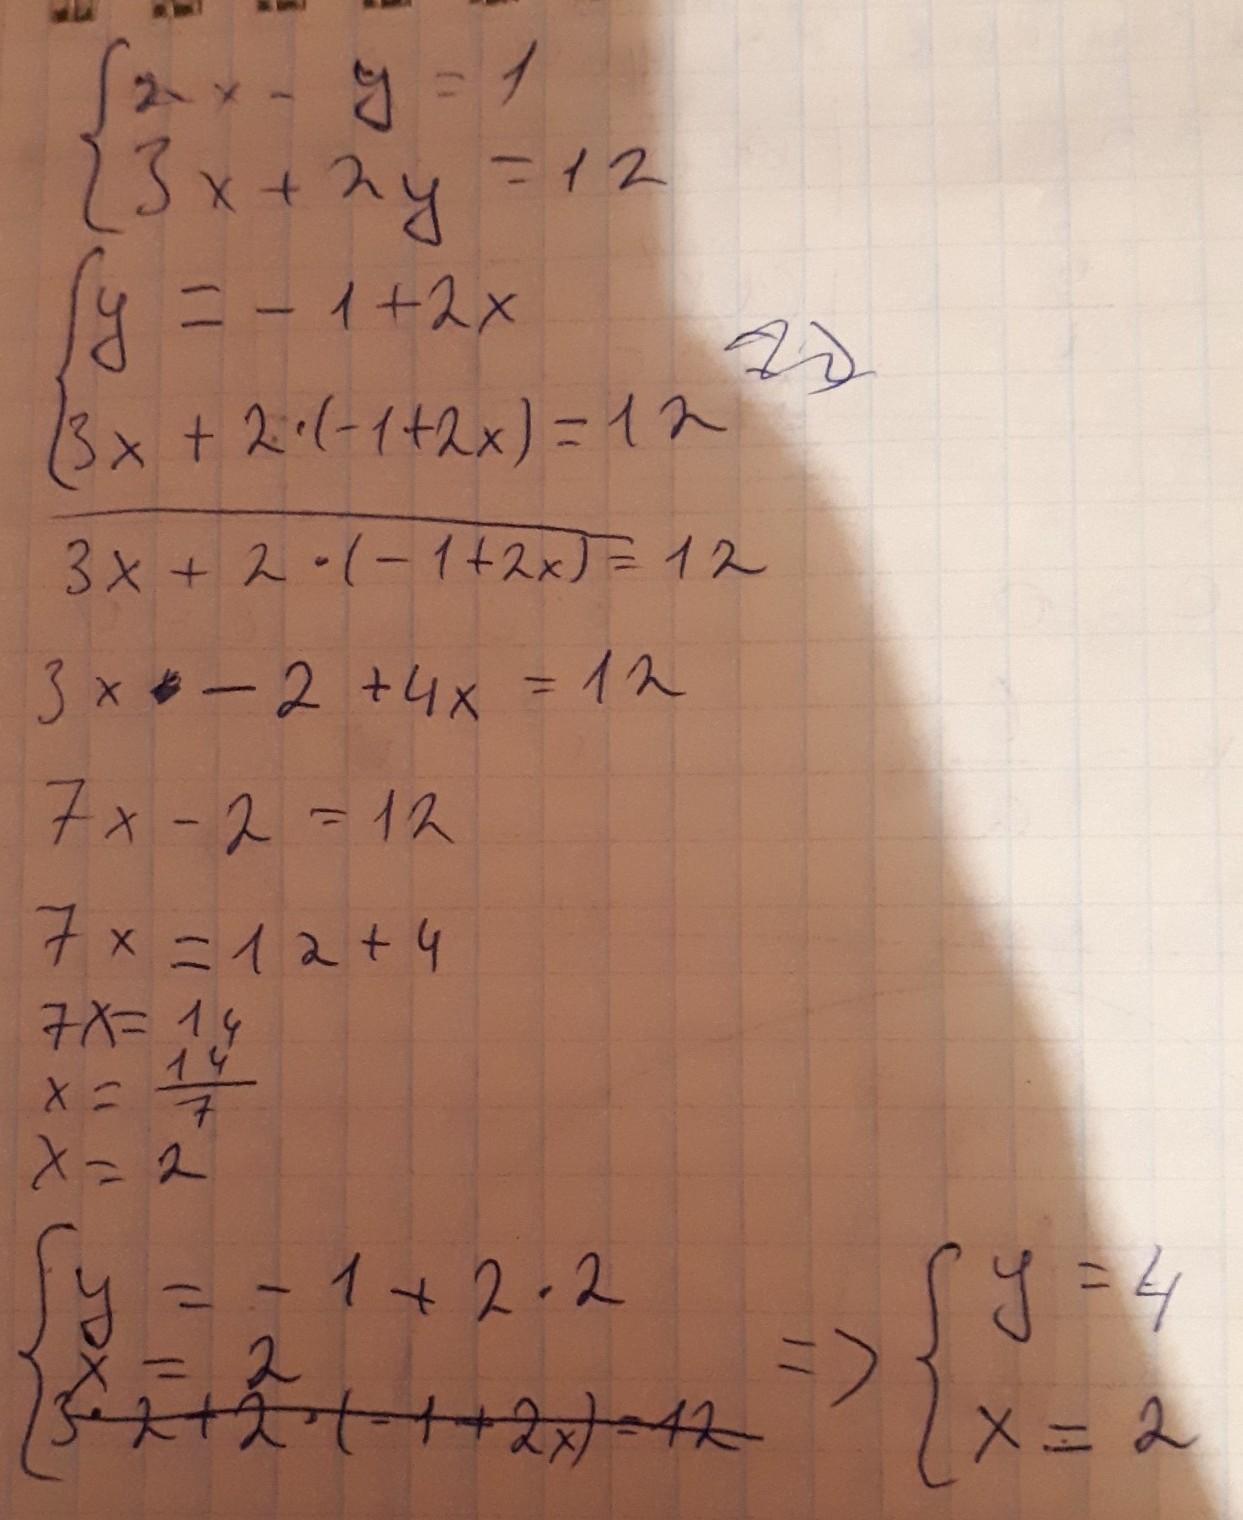 {2x - y = 1
{3x + 2y = 12
{y = - 1 + 2x
{3x + 2·(-1+2x) = 12
3x + 2·(-1+2x) = 12
3x - 2 + 4x = 12
7x - 2 = 12
7x = 12 + 4
7x = 14
x = 14/7
x = 2
{y = - 1 + 2·2
x = 2
3·2+2·(-1+2x)=12
=> {y = 4
x = 2